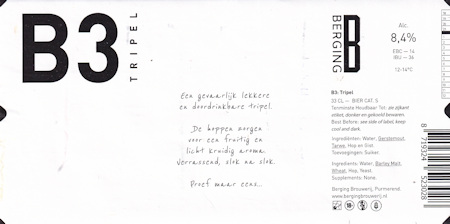 B3
TRIPEL
Een gevaarlijk lekkere
en doordrinkbare tripel.
De hoppen zorgen
voor een fruitig en
licht kruidig aroma.
Verrassend, slok na slok.
Proef maar eens...
BERGING
Alc.
8,4%
EBC — 14
IBU — 36
12-14°C
B3: Tripel
33 CL — BIER CAT. S
Tenminste Houdbaar Tot: zie zijkant
etiket, donker en gekoeld bewaren.
Best Before: see side of label, keep
cool and dark.
Ingrediënten: Water, Gerstemout,
Tarwe, Hop en Gist
Toevoegingen: Suiker
Ingredients: Water, Barley Malt,
Wheat, Hop, Yeast.
Supplements: None.
Berging Brouwerij, Purmerend.
www.bergingbrouwerij.nl
8 719324 523028